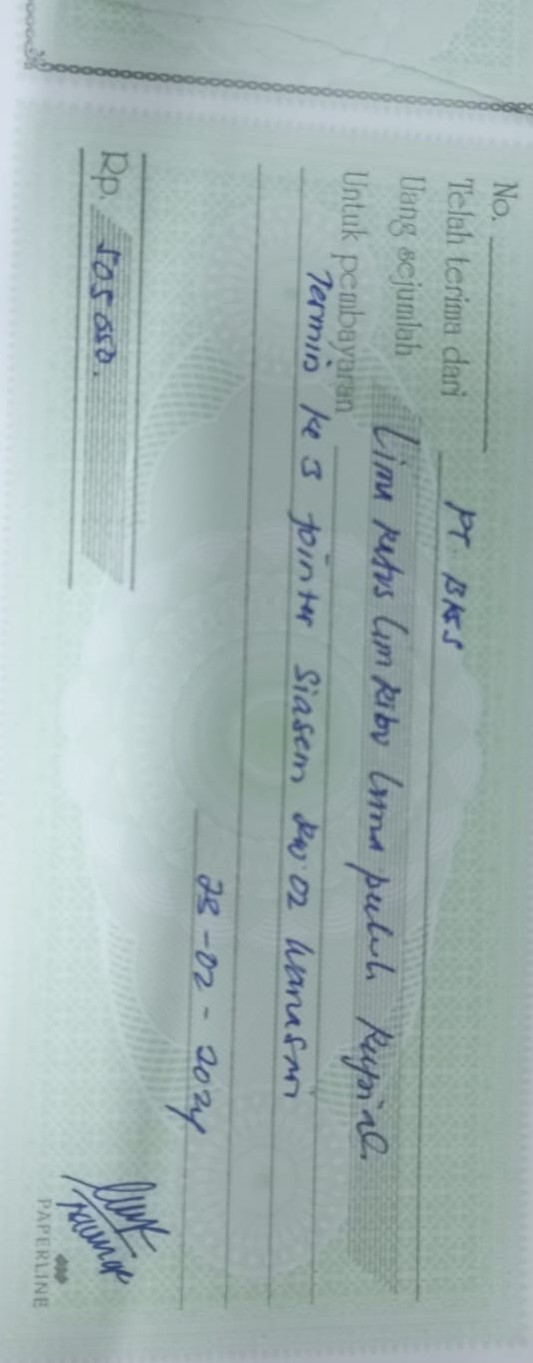 No.
Telah terima dari PT. BKS
Uang sejumlah Lima Ratus lim Ribu lima puluh Rupiah
Untuk pembayaran
Termin ke 3 Jointer Siasem RW 02 Wanasari
28-02-2024
Rp. 505 050.
PAPERLINE